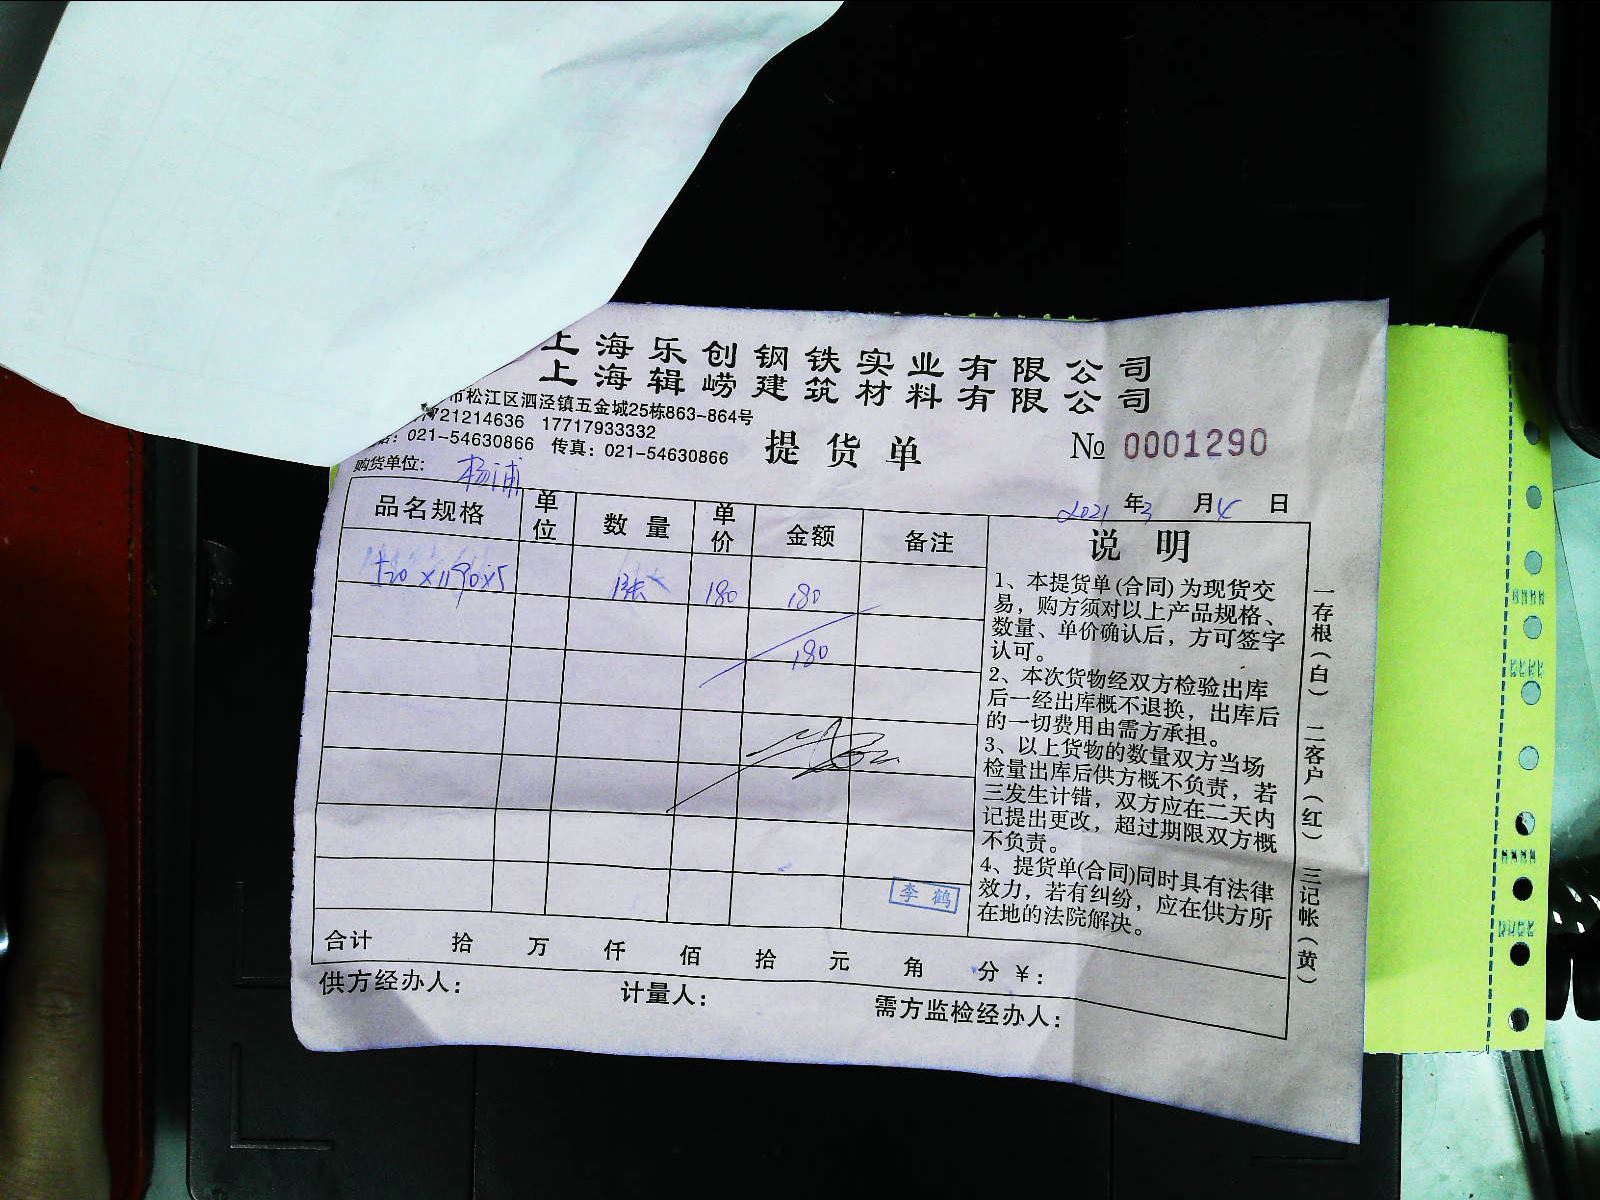 上海乐创钢铁实业有限公司
上海辑崂建筑材料有限公司
市松江区泗泾镇五金城25栋863-864号
721214636 17717933332
：021-54630866 传真：021-54630866
提货单
№ 0001290
购货单位： 杨浦
2021 年 3 月 4 日
品名规格 单位 数量 单价 金额 备注
x1190x5 1张 180 180
180
李鹤
合计 拾 万 仟 佰 拾 元 角 分 ￥：
供方经办人： 计量人： 需方监检经办人：
说明
1、本提货单(合同)为现货交
易，购方须对以上产品规格、
数量、单价确认后，方可签字
认可。
2、本次货物经双方检验出库
后一经出库概不退换，出库后
的一切费用由需方承担。
3、以上货物的数量双方当场
检量出库后供方概不负责，若
三发生计错，双方应在二天内
记提出更改，超过期限双方概
不负责。
4、提货单(合同)同时具有法律
效力，若有纠纷，应在供方所
在地的法院解决。
一存根（白） 二客户（红） 三记帐（黄）